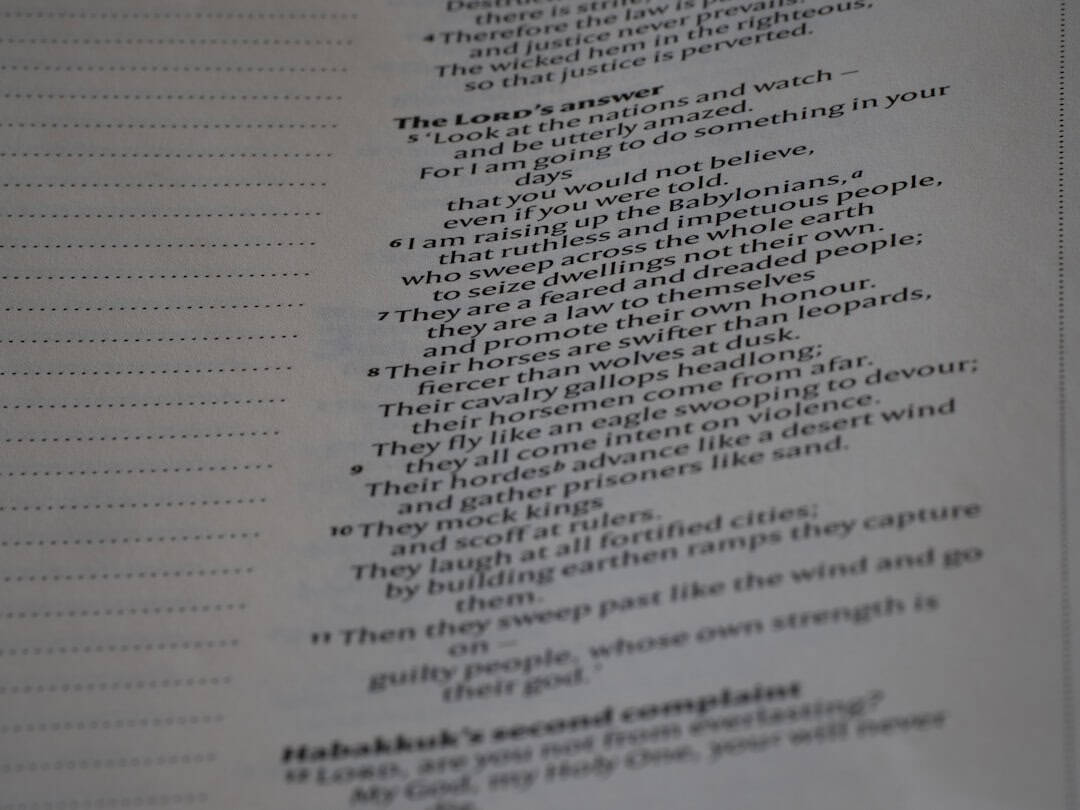 there is strife,
4 Therefore the law is
and justice never prevails.
The wicked hem in the righteous,
so that justice is perverted.
The LORD's answer
5 ‘Look at the nations and watch –
and be utterly amazed.
For I am going to do something in your
days
that you would not believe,
even if you were told.
6 I am raising up the Babylonians,a
that ruthless and impetuous people,
who sweep across the whole earth
to seize dwellings not their own.
7 They are a feared and dreaded people;
they are a law to themselves
and promote their own honour.
8 Their horses are swifter than leopards,
fiercer than wolves at dusk.
Their cavalry gallops headlong;
their horsemen come from afar.
They fly like an eagle swooping to devour;
9 they all come intent on violence.
Their hordesb advance like a desert wind
and gather prisoners like sand.
10 They mock kings
and scoff at rulers.
They laugh at all fortified cities;
by building earthen ramps they capture
them.
11 Then they sweep past like the wind and go
on –
guilty people, whose own strength is
their god.’
Habakkuk's second complaint
LORD, are you not from everlasting?
My God, my Holy One, you will never